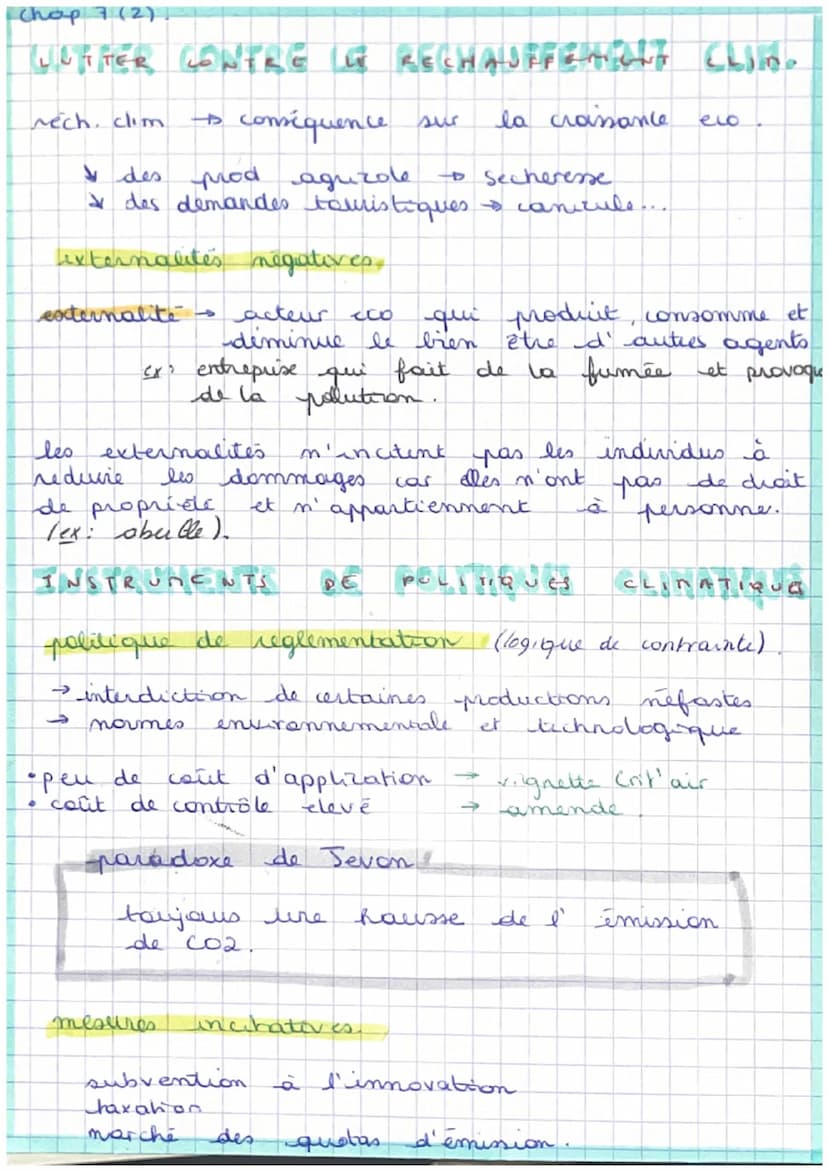 Chap 7 (2).
LUTTER CONTRE LE RECHAUFFEMENT CLIM.
réch. clim → conséquence sur la croissance eco.
↘ des prod agricole → secheresse
↘ des demandes touristiques → canicule...
externalités négatives.
externalité → acteur eco qui produit, consomme et
diminue le bien être d'autres agents
ex: entreprise qui fait de la fumée et provoque
de la pollution.
les externalités n'incitent pas les individus à
reduire les dommages car elles n'ont pas de droit
de propriété et n'appartiennent à personne.
(ex: abeille).
INSTRUMENTS DE POLITIQUES CLIMATIQUE
politique de réglementation (logique de contrainte).
→ interdiction de certaines productions néfastes
→ normes environnementale et technologique
• peu de coût d'application → vignette Crit'air
• coût de contrôle elevé → amende.
paradoxe de Jevon
toujours une hausse de l'émission
de CO2.
mesures incitatives.
subvention à l'innovation
taxation
marché des quotas d'émission.